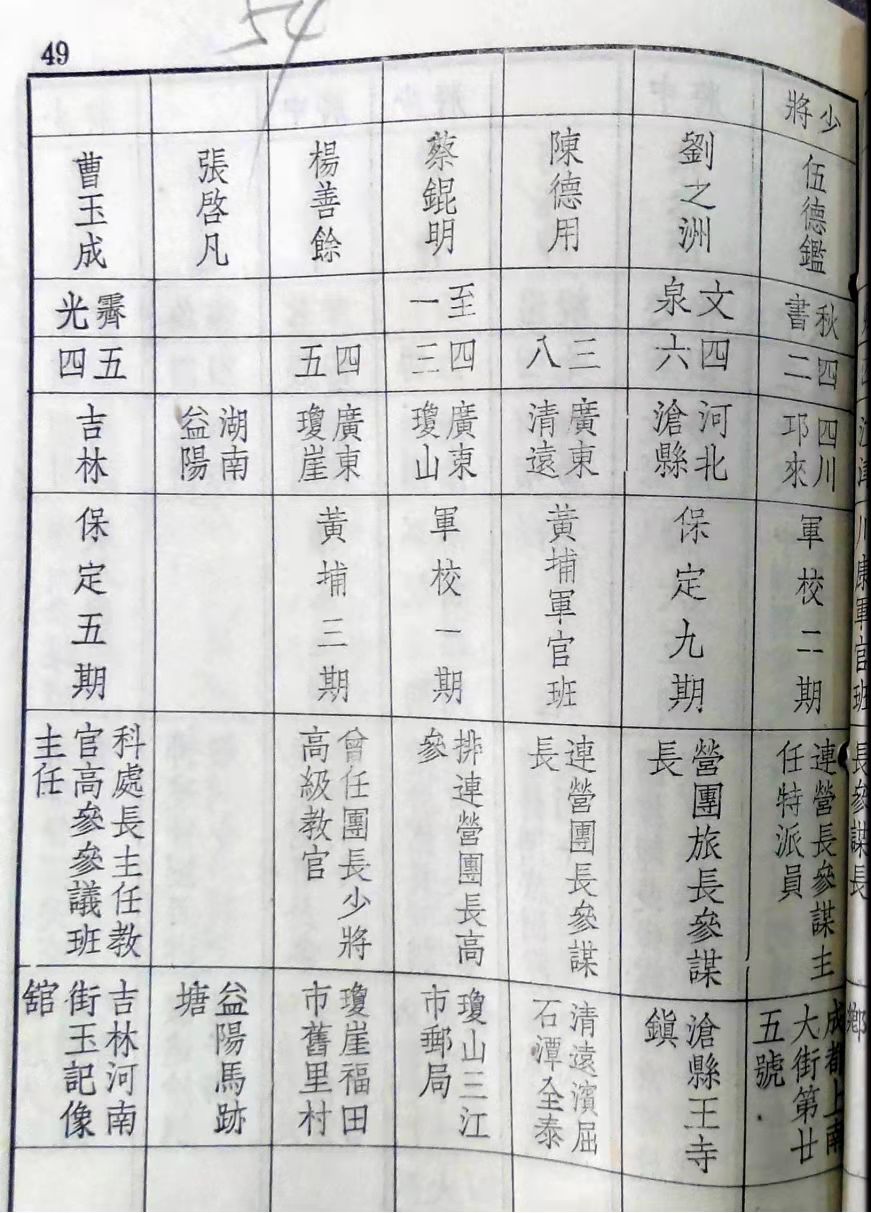 49
54
少將
伍德鑑
秋書
四二
四川
邛來
軍校二期
連營長參謀主
任特派員
成都上南
大街第廿
五號
劉之洲
文泉
四六
河北
滄縣
保定九期
營團旅長參謀
長
滄縣王寺
鎮
陳德用
三八
廣東
清遠
黃埔軍官班
連營團長參謀
長
清遠濱屈
石潭全泰
蔡錕明
至一
四三
廣東
瓊山
軍校一期
排連營團長高
參
瓊山三江
市郵局
楊善餘
四五
廣東
瓊崖
黃埔三期
曾任團長少將
高級教官
瓊崖福田
市舊里村
張啓凡
湖南
益陽
益陽馬跡
塘
曹玉成
霽光
五四
吉林
保定五期
科處長主任教
官高參參議班
主任
吉林河南
街玉記像
舘